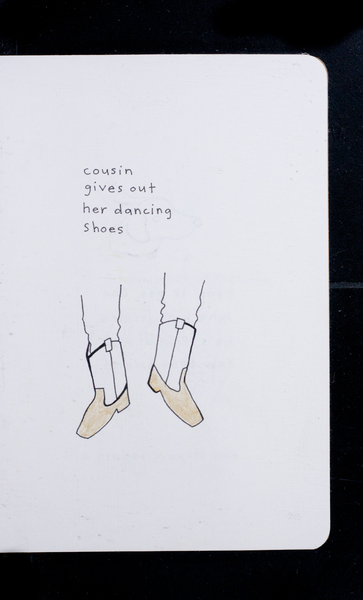 cousin
gives out
her dancing
shoes